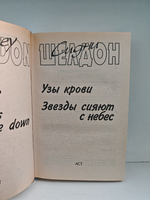 ДОН ШЕЛДОН
Сидни
Узы крови
Звезды сияют
с небес
e down
АСТ